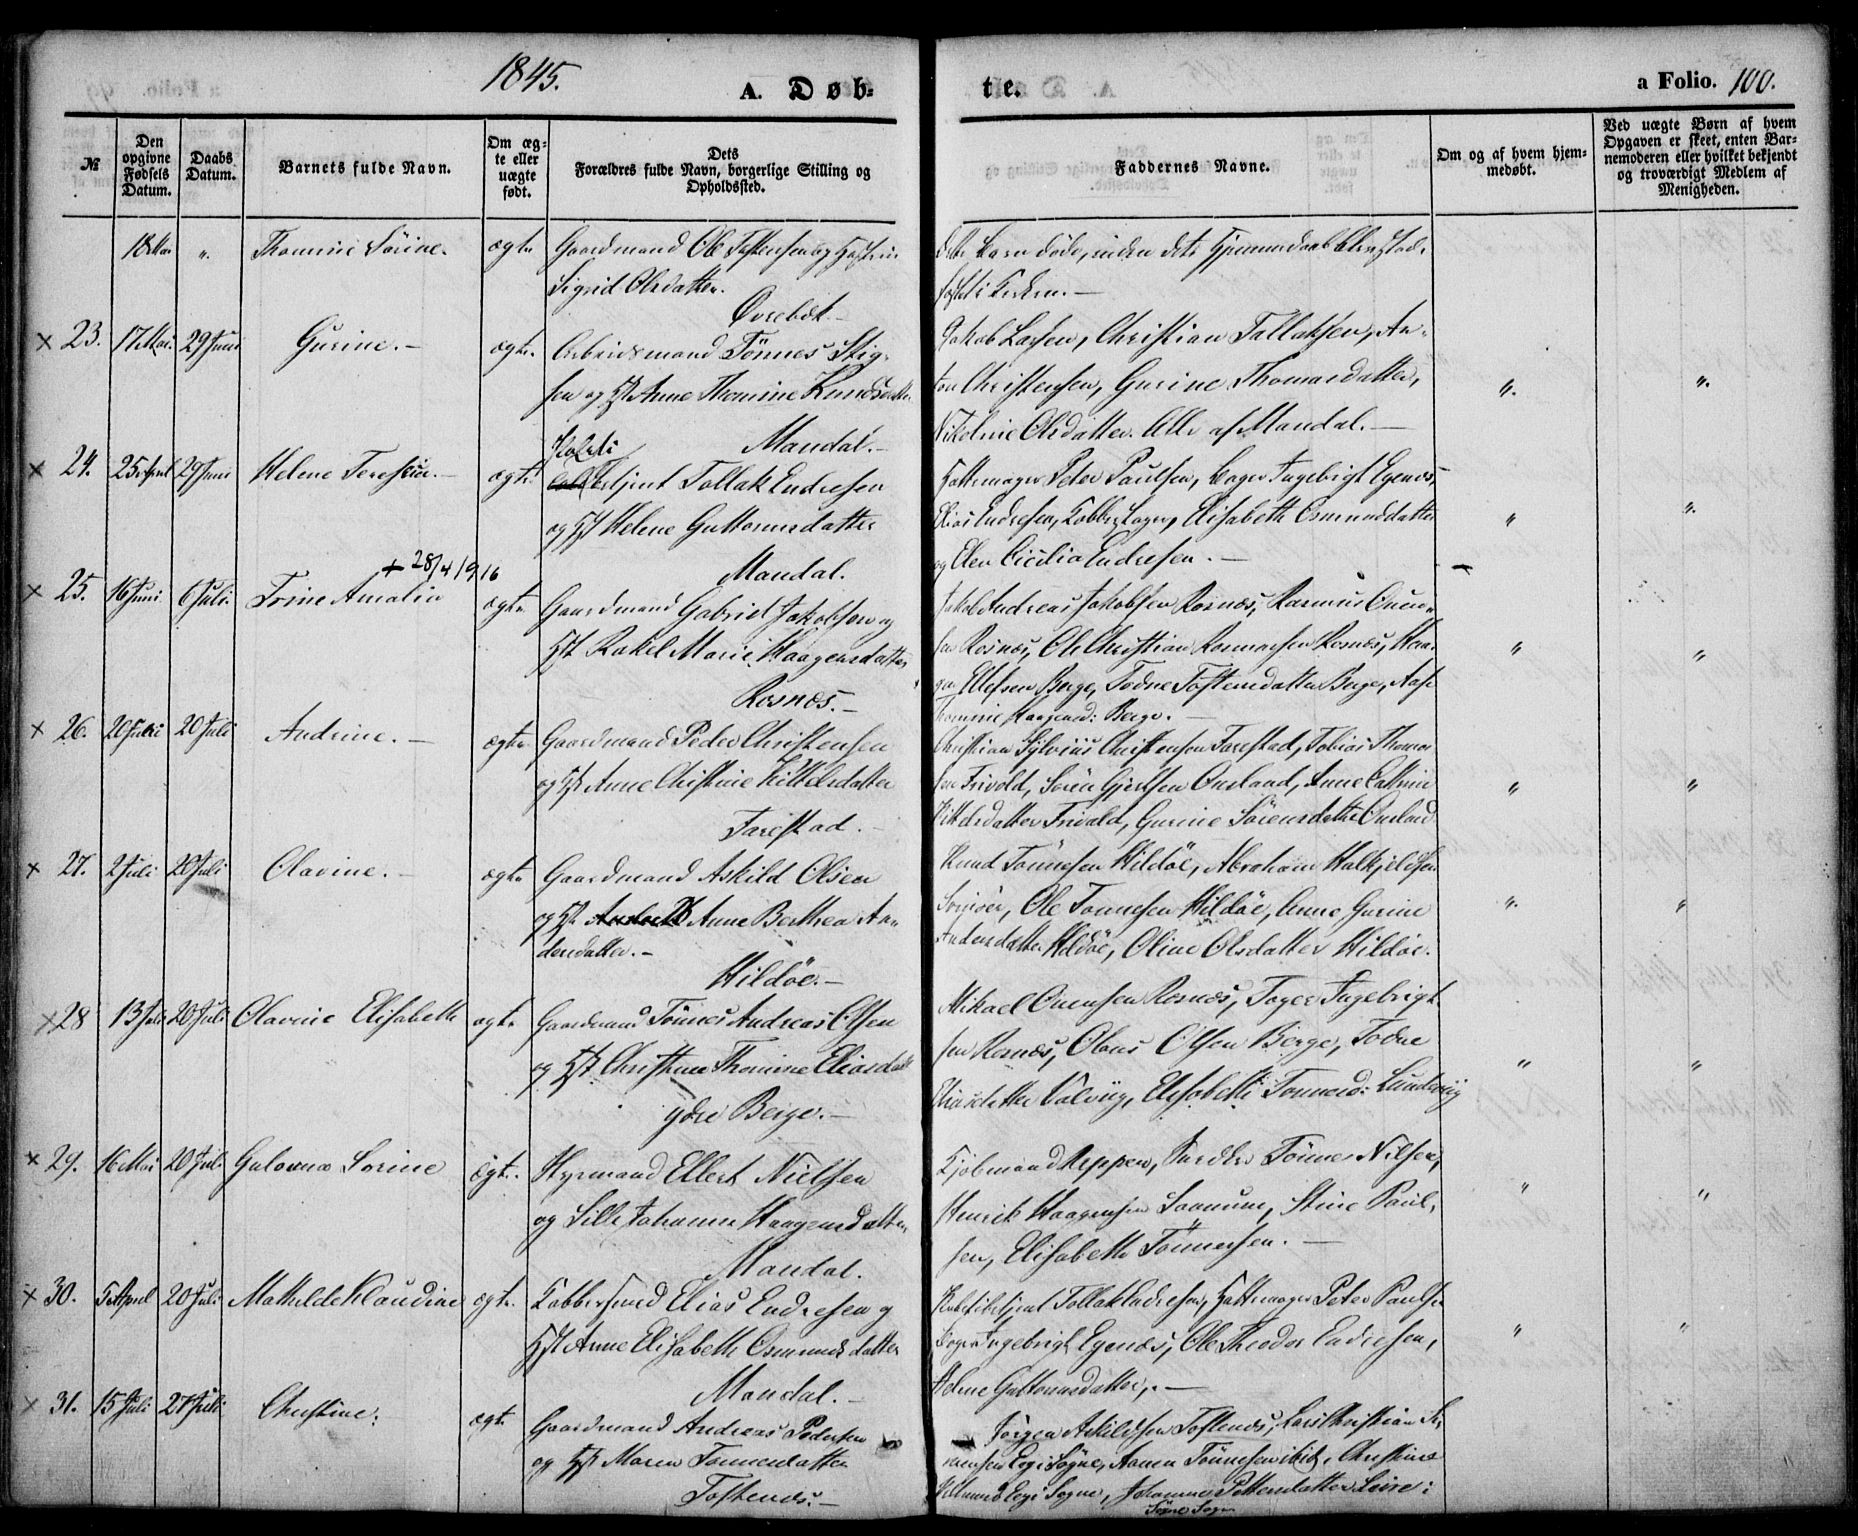 1845.
A. Døb-
te.
a Folio. 100.
№
Den opgivne Fødsels Datum.
Daabs Datum.
Barnets fulde Navn.
Om ægte eller uægte født.
Dets
Forældres fulde Navn, borgerlige Stilling og
Opholdssted.
Faddernes Navne.
Om og af hvem hjem-
medøbt.
Ved uægte Børn af hvem
Opgaven er skeet, enten Bar-
nemoderen eller hvilket bekjendt
og troværdigt Medlem af
Menigheden.
18 Mai " Thomine Sörine. ægte Gaardmand Ole
Sigrid Olsdatter.
Øvrebø.
Dette Barn døde, inden dets Hjemmedaab blev stad-
fæstet i Kirken. —
× 23. 17 Mai 29 Juni Gurine. — ægte. Arbeidsmand Tönnes Stig-
sen og Hst Anne Thomine Knudsdatter
Mandal. —
Jakob Larsen, Christian Tallaksen, An-
ton Christensen, Gurine Thomasdatter,
Nikoline Olsdatter. Alle af Mandal. —
" "
× 24. 25 April 29 Juni Helene Teresia. — ægte Tollak Endresen
og Hst Helene Guttormsdatter
Mandal.
Hattemager Peter Paulsen, Bager Ingebrigt Egenæs,
Elias Endresen, Kobberslager, Elisabeth Osmundsdatter
og Elen Cicilia Endresen. —
" "
+ 28/4 1916
× 25. 16 Juni 6 Juli Trine Amalia ægte Gaardmand Gabriel Jakobsen og
Hst Rakel Marie Haagensdatter
Rosnæs. —
Jakob Andreas Jakobsen Rosnæs, Rasmus Onen-
sen Rosnæs, Ole Christian Rasmussen Rosnæs, Haa-
gen Ellefsen Berge, Todne Tostensdatter Berge, Aase
Thomine Haagensd: Berge. —
" "
× 26. 20 Juni 20 Juli Andrine. — ægte Gaardmand Peder Christensen
og Hst Anne Christine Kittelsdatter
Farestad. —
Christian Sylvius Christensen Farestad, Tobias Thomas
sen Frivold, Sören Gjertsen Ousland, Anne Cathrine
Kittelsdatter Frivold, Gurine Sörensdatter Ousland
" "
× 27. 2 Juli 20 Juli Olavine. — ægte Gaardmand Askild Olsen
og Hst Anne Berthea An-
dersdatter. —
Hildöe. —
Knud Tönnesen Hildöe, Abraham Halkjeldsen
Ole Tönnesen Hildöe, Anne Gurine
Andersdatter Hildöe, Oline Olsdatter Hildöe.
" "
× 28 13 Juli 20 Juli Olavine Elisabeth ægte Gaardmand Tönnes Andreas Olsen
og Hst Christine Thomine Eliasdatter
ydre Berge. —
Mikael Onensen Rosnæs, Tager Ingebrigt
sen Rosnæs, Olaus Olsen Berge, Todne
Eliasdatter Valvig, Elisabeth Tönnesd: Lundevig
" "
× 29. 16 Mai 20 Juli Gulovna Sorine ægte. Styrmand Ellert Nielsen
og Sille Johanne Haagensdatter
Mandal.
Kjöbmand Reppen, Tönnes Nilsen,
Henrik Haagensen Saanum, Stine Paul-
sen, Elisabeth Tönnesen. —
" "
× 30. 5 April 20 Juli Mathilde Klaudine ægte. Kobbersmed Elias Endresen og
Hst Anne Elisabeth Osmundsdatter
Mandal. —
Tollak Endresen, Hattemager Peter Paulsen
Bager Ingebrigt Egenæs, Ole Theodor Endresen,
Helene Guttormsdatter. —
" "
× 31. 15 Juli 27 Juli Christine. ægte Gaardmand Andreas Pedersen
og Hst Maren Tönnesdatter
Tostenæs. —
Jörgen Askildsen Tostenæs, Lars Christian Sö-
rensen Eeg i Sögne, Aanen Tönnesen ibid, Christine
Eeg i Sogne, Johanne Pettersdatter
Sögne Sogn